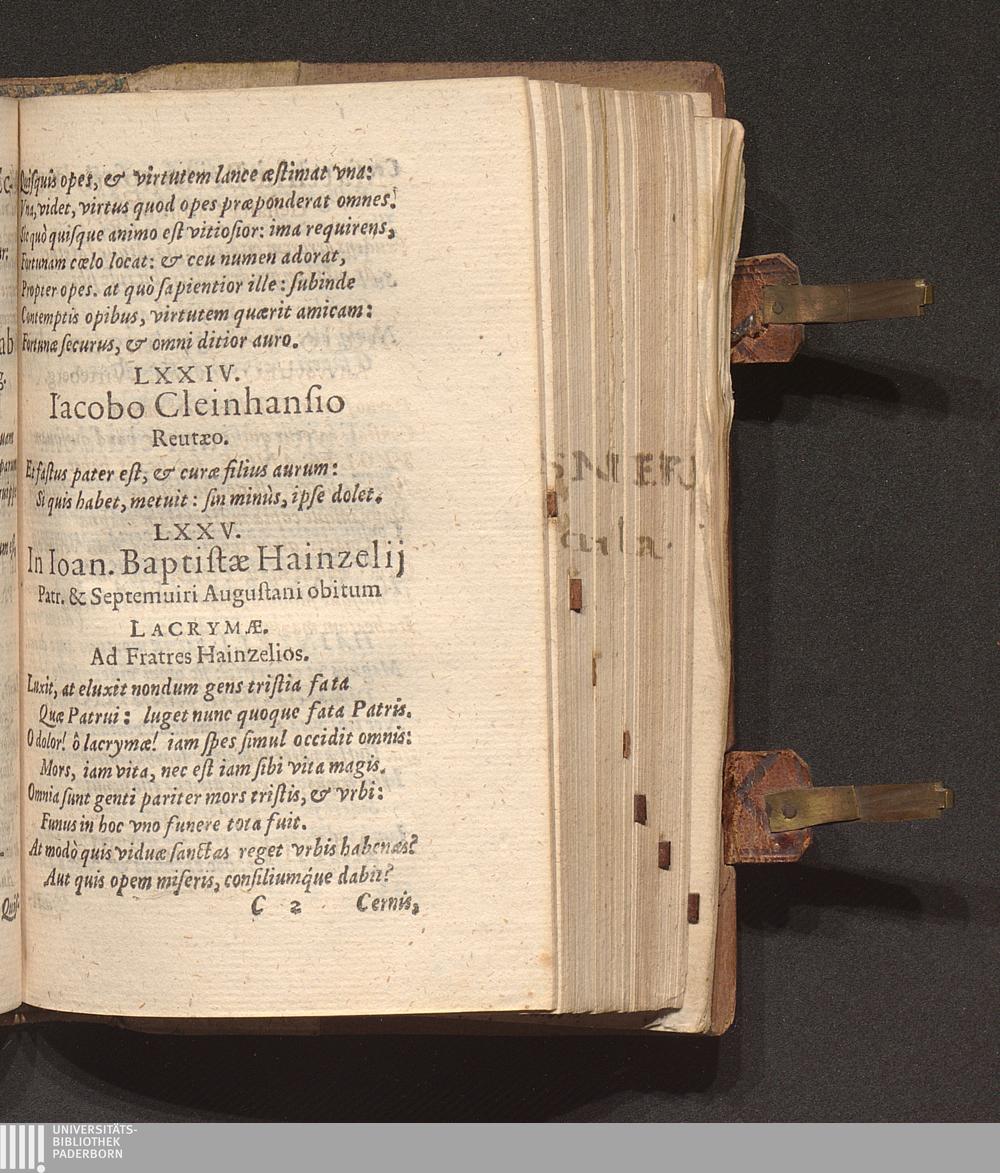 Quiſquis opes, & virtutem lance æſtimat vna:
Vna, videt, virtus quod opes præponderat omnes.
Sic quò quiſque animo eſt vitioſior: ima requirens,
Fortunam cœlo locat: & ceu numen adorat,
Propter opes. at quò ſapientior ille: ſubinde
Contemptis opibus, virtutem quærit amicam:
Fortunæ ſecurus, & omni ditior auro.
LXXIV.
Iacobo Cleinhanſio
Reutæo.
Et faſtus pater eſt, & curæ filius aurum:
Si quis habet, metuit: ſin minùs, ipſe dolet.
LXXV.
In Ioan. Baptiſtæ Hainzelij
Patr. & Septemuiri Auguſtani obitum
LACRYMÆ.
Ad Fratres Hainzelios.
Luxit, at eluxit nondum gens triſtia fata
Quæ Patrui: luget nunc quoque fata Patris.
O dolor! ô lacrymæ! iam ſpes ſimul occidit omnis:
Mors, iam vita, nec eſt iam ſibi vita magis.
Omnia ſunt genti pariter mors triſtis, & vrbi:
Funus in hoc vno funere tota fuit.
At modò quis viduæ ſanctas reget vrbis habenas?
Aut quis opem miſeris, conſiliumq́ue dabit?
C 2 Cernis,
UNIVERSITÄTS-
BIBLIOTHEK
PADERBORN